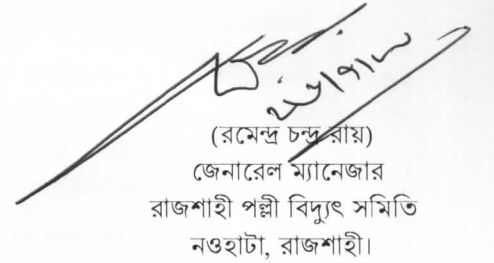 (রমেন্দ্র চন্দ্র রায়)
জেনারেল ম্যানেজার
রাজশাহী পল্লী বিদ্যুৎ সমিতি
নওহাটা, রাজশাহী।